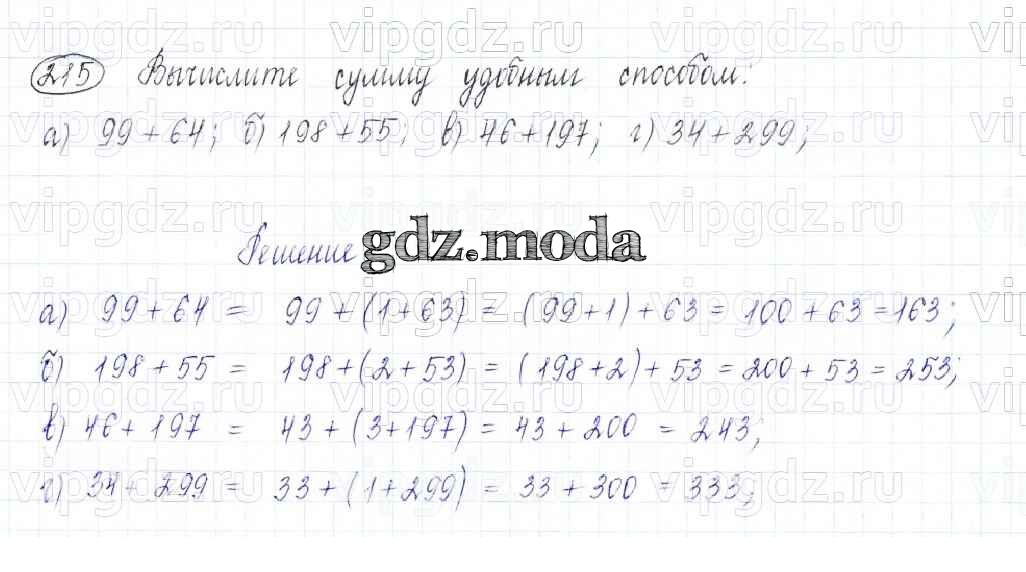 vipgdz.ru vipgdz.ru vipgdz.ru vi
215 Вычислите сумму удобным способом:
а) 99 + 64; б) 198 + 55; в) 46 + 197; г) 34 + 299;
vipgdz.ru vipgdz.ru vipgdz.ru vi
Решение gdz.moda
а) 99 + 64 = 99 + (1 + 63) = (99 + 1) + 63 = 100 + 63 = 163;
б) 198 + 55 = 198 + (2 + 53) = (198 + 2) + 53 = 200 + 53 = 253;
в) 46 + 197 = 43 + (3 + 197) = 43 + 200 = 243;
г) 34 + 299 = 33 + (1 + 299) = 33 + 300 = 333;